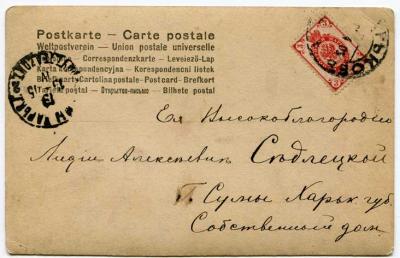 Postkarte — Carte postale
Weltpostverein — Union postale universelle
Correspondenzkarte — Levelező-Lap
Karta korespondencyjna — Korespondenční listek
Cartolina postale — Postcard — Brefkort
postal — Открытое письмо — Bilhete postal
ХАРЬКОВ
Ея Высокоблагородію
Лидіи Алексѣевнѣ Сѣдлецкой
Г. Сумы Харьк. губ.
Собственный дом.